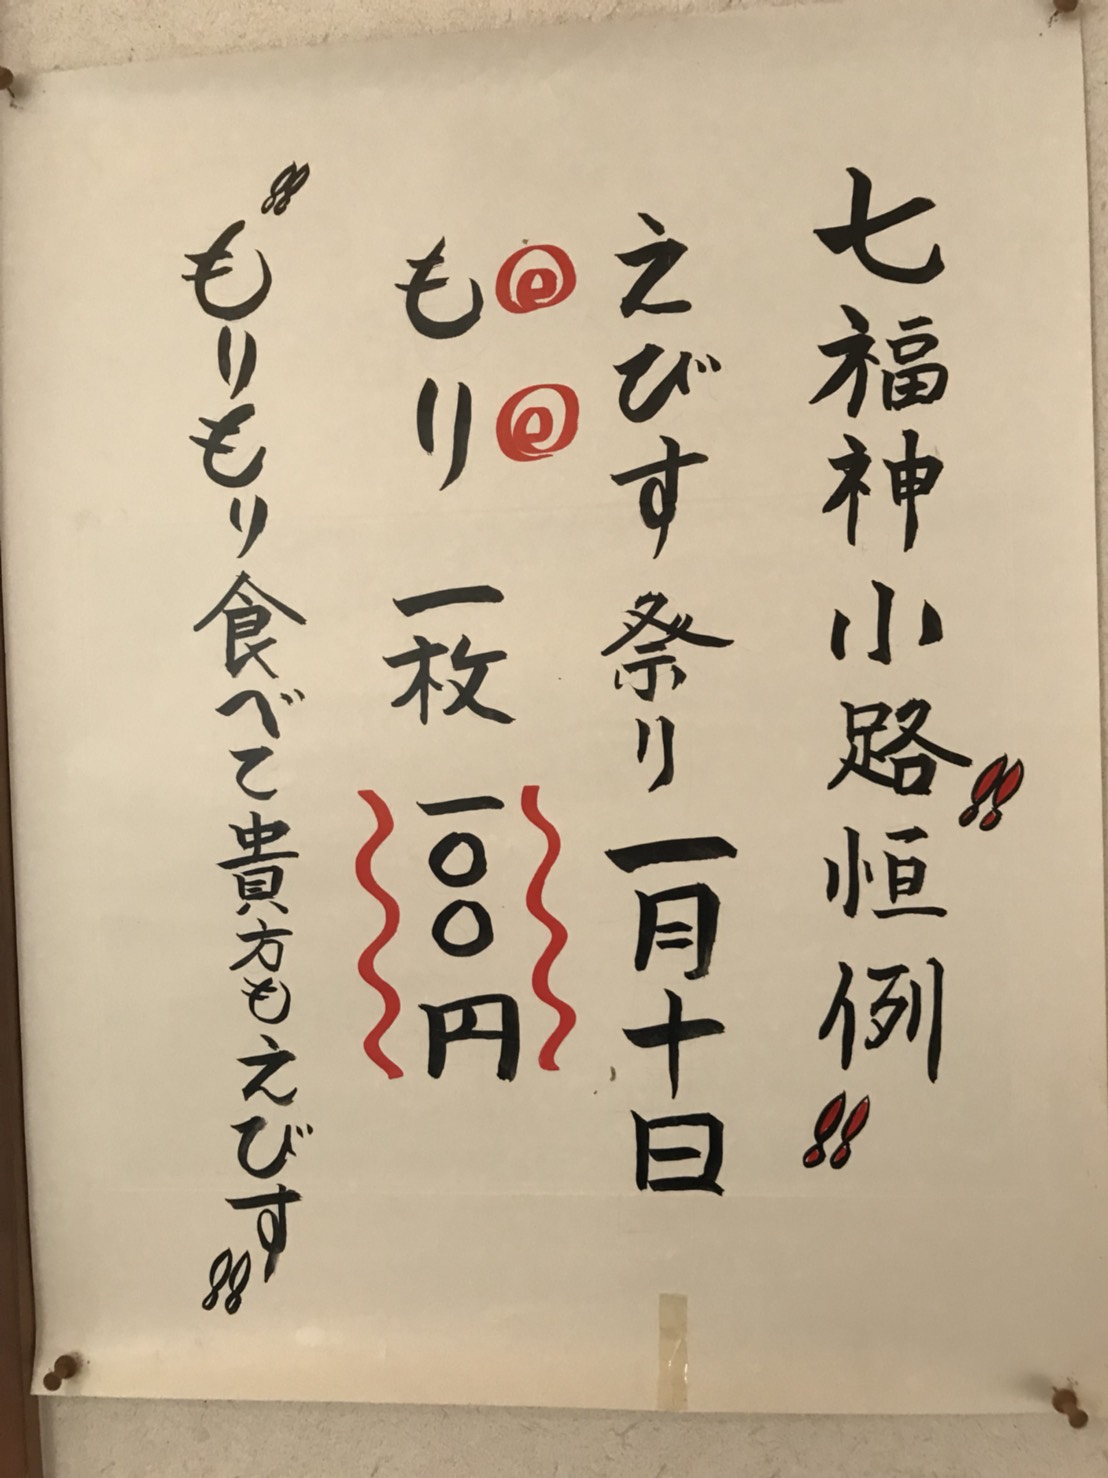 七福神小路〃恒例〃
えびす祭り一月十日
もり一枚一〇〇円
〃もりもり食べて貴方もえびす〃